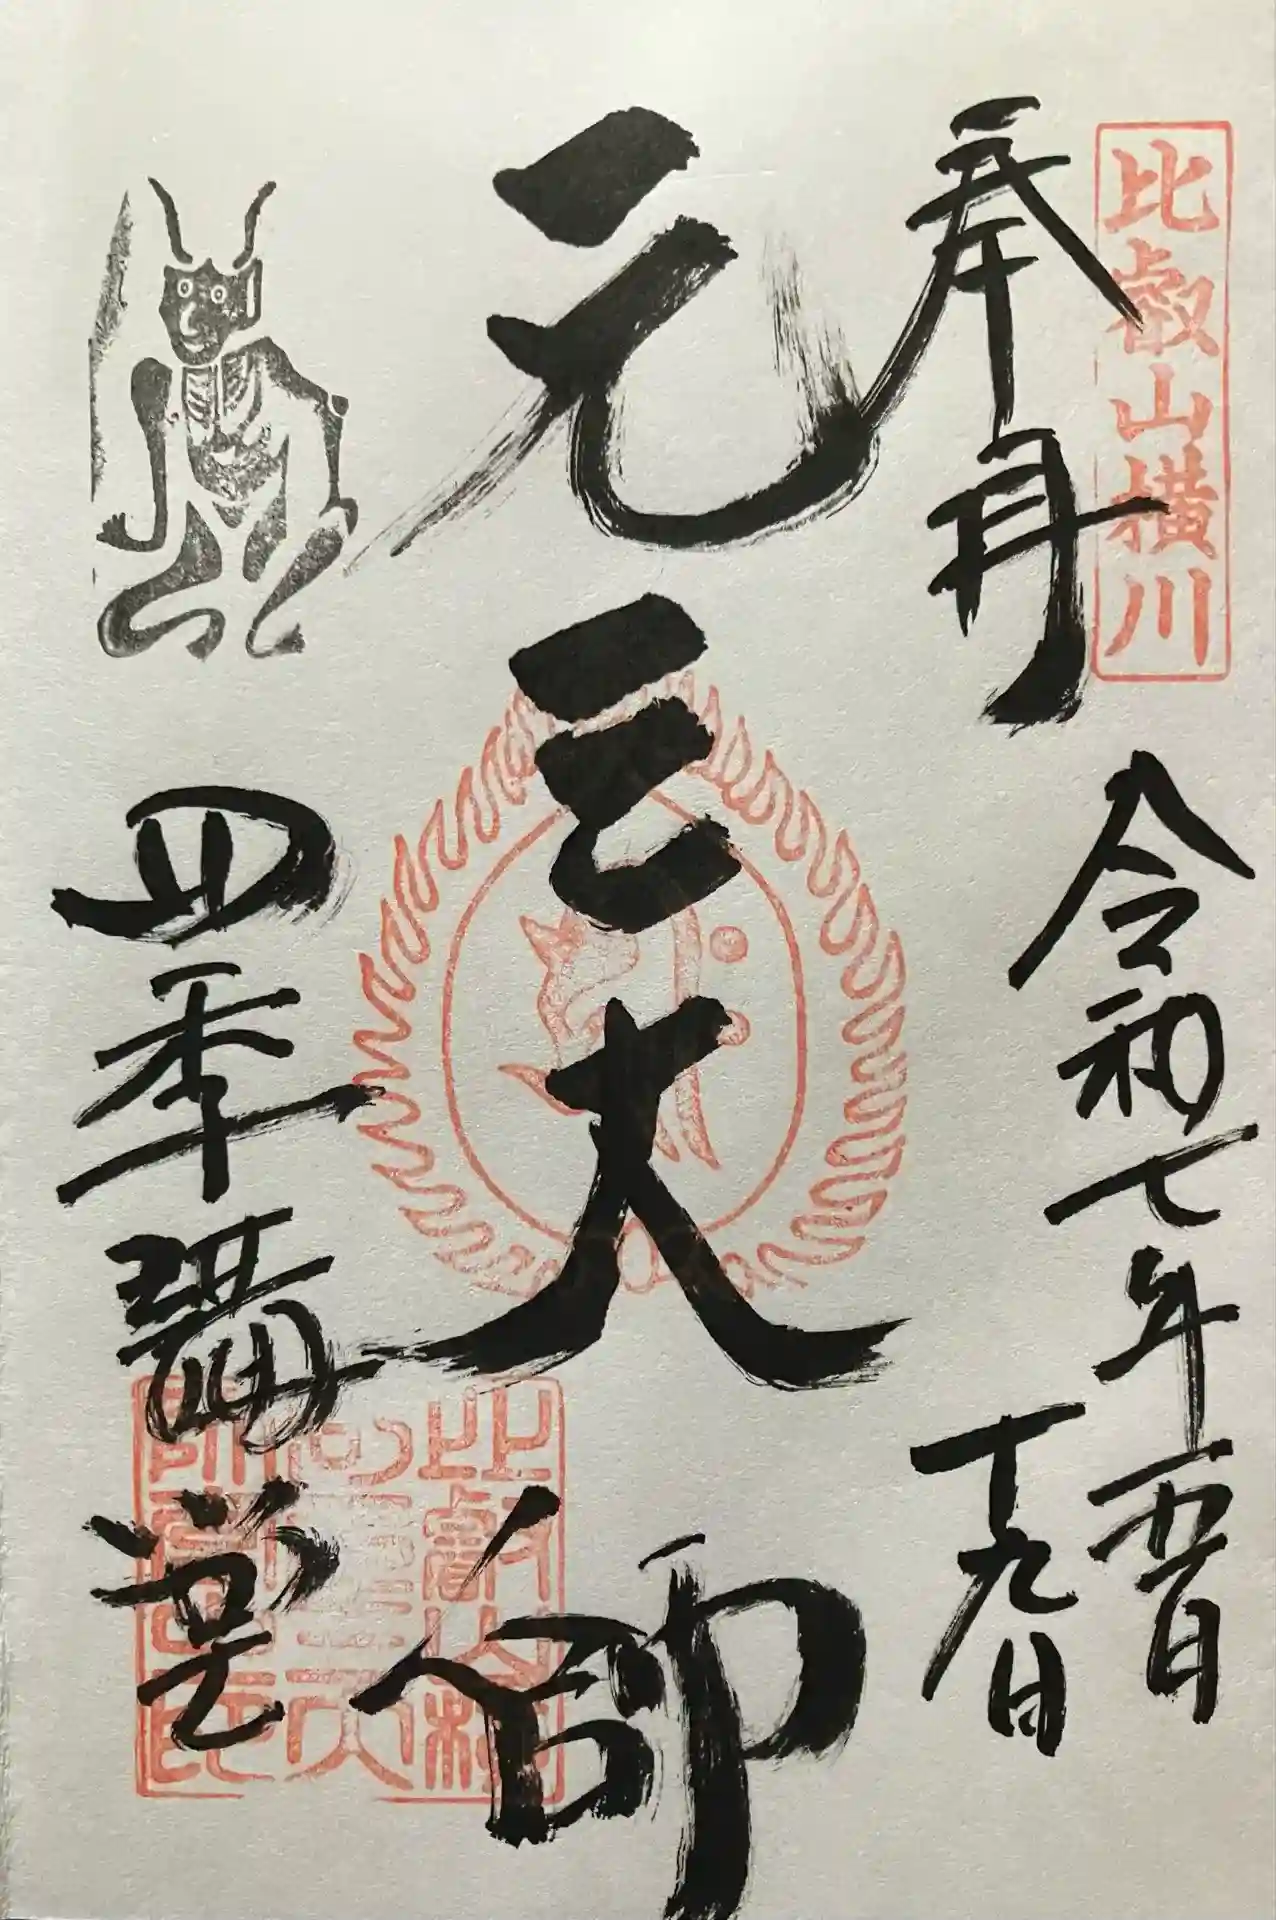 比叡山横川
奉拝
令和七年四月
十九日
元三大師
四季講堂